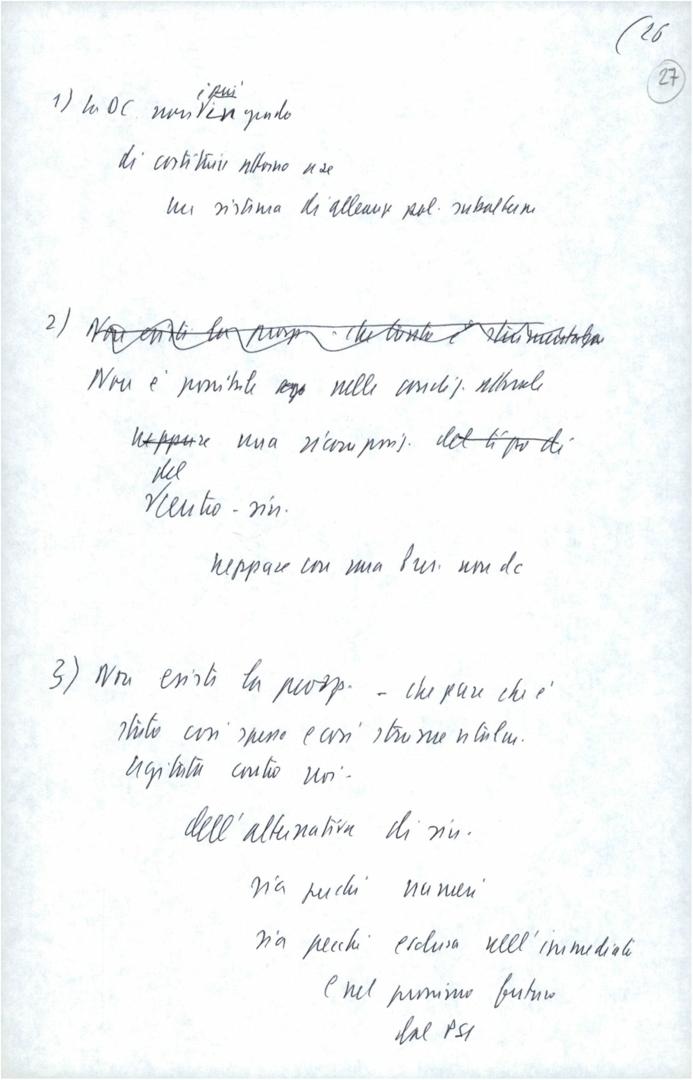 (26
27
1) la DC non è più in grado
di costituire attorno a se
un sistema di alleanze pol. subalterne
2) Non esiste la prosp. - che tante è strumentalm
Non è possibile nelle condiz. attuale
neppure una ricompos. del tipo di
del
centro-sin.
neppure con una Pres. non dc
3) Non esiste la prosp. - che pure che è
stata così spesso e così strumentalm.
agitata contro noi -
dell'alternativa di sin.
sia perché numeri
sia perché esclusa nell'immediato
e nel prossimo futuro
dal PSI